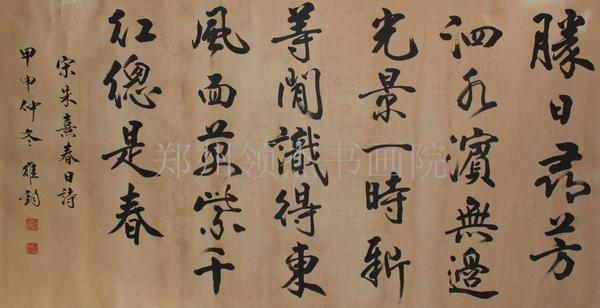 勝日尋芳
泗水濱無邊
光景一時新
等閒識得東
風面萬紫千
紅總是春
宋朱熹春日詩
甲申仲冬雅鈞